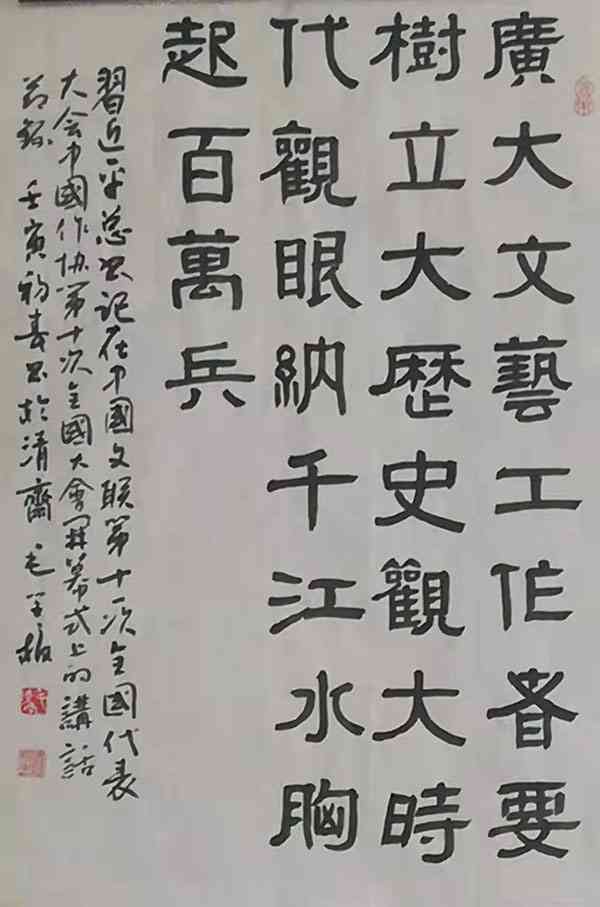 廣大文藝工作者要
樹立大歷史觀大時
代觀眼納千江水胸
起百萬兵
習近平总书记在中國文联第十一次全國代表
大会中國作协第十次全國大會開幕式上的講話
节録 壬寅初春书於清齋 毛